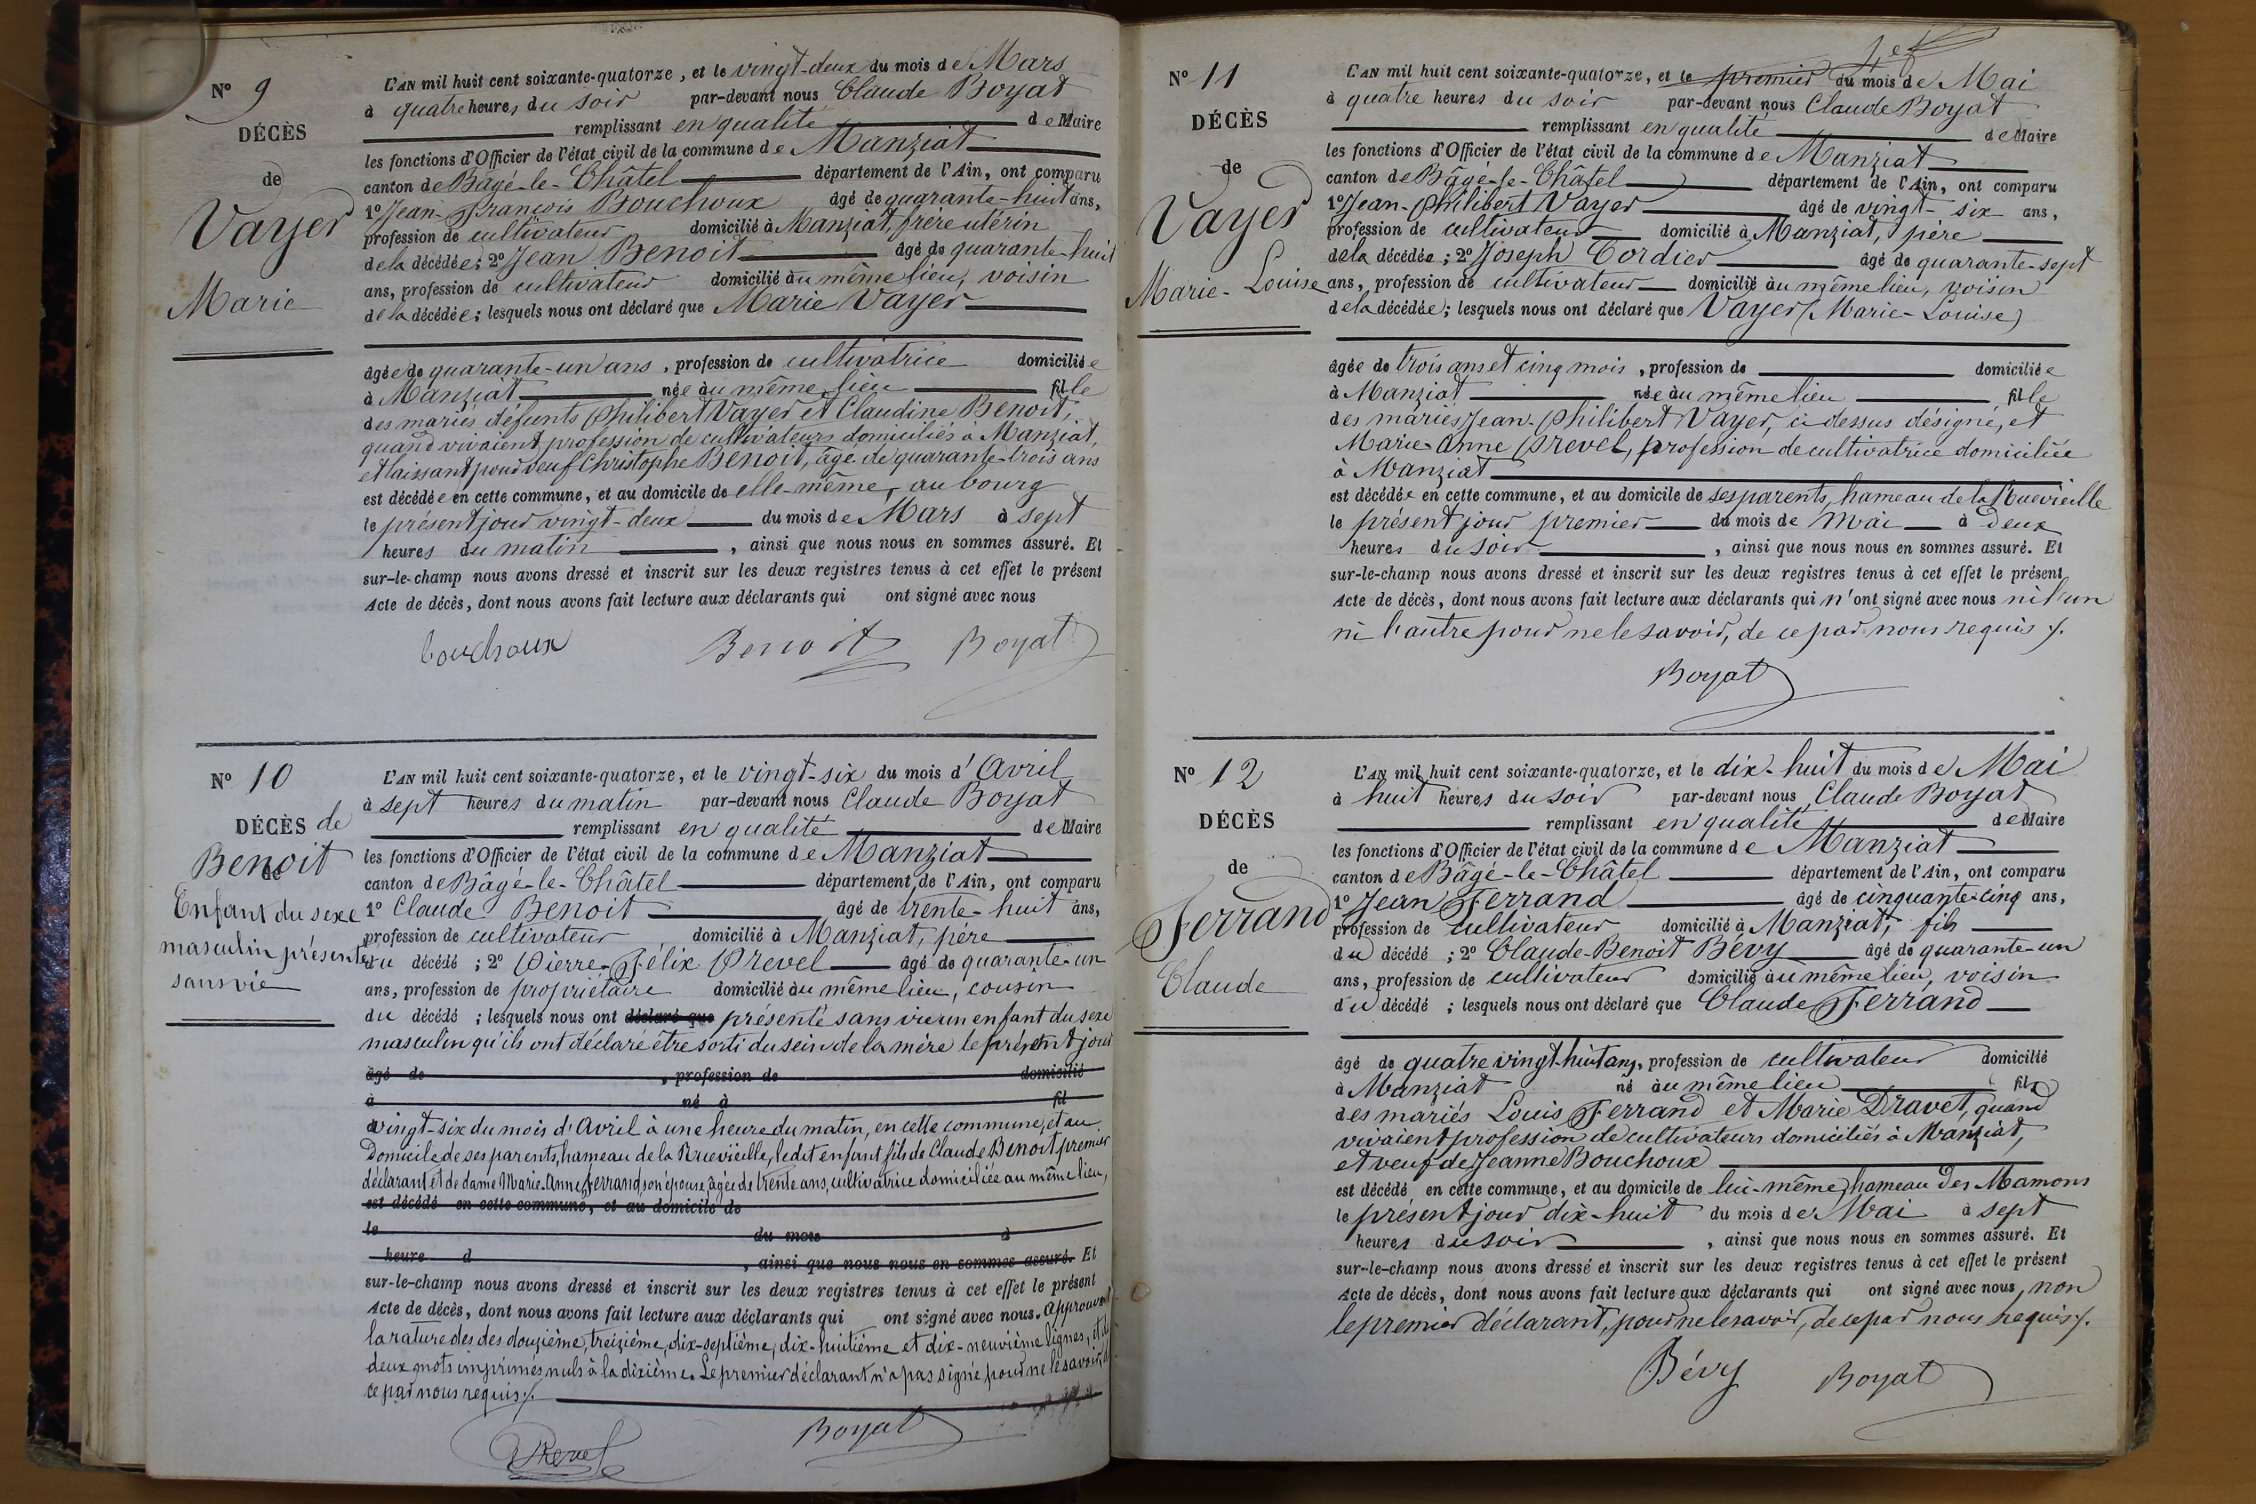 N° 9
DÉCÈS
de
Vayer
Marie
L'AN mil huit cent soixante-quatorze, et le vingt-deux du mois de Mars
à quatre heures du soir par-devant nous Claude Boyat
remplissant en qualité de Maire
les fonctions d'Officier de l'état civil de la commune de Manziat
canton de Bâgé-le-Châtel département de l'Ain, ont comparu
1° Jean-François Bouchoux âgé de quarante-huit ans,
profession de cultivateur domicilié à Manziat, frère utérin
de la décédée; 2° Jean Benoit âgé de quarante-huit
ans, profession de cultivateur domicilié au même lieu, voisin
de la décédée; lesquels nous ont déclaré que Marie Vayer
âgée de quarante-un ans, profession de cultivatrice domiciliée
à Manziat née au même lieu fille
des mariés défunts Philibert Vayer et Claudine Benoit,
quand vivaient profession de cultivateurs domiciliés à Manziat,
et laissant pour veuf Christophe Benoit, âgé de quarante-trois ans
est décédée en cette commune, et au domicile de elle-même, au bourg
le présent jour vingt-deux du mois de Mars à sept
heures du matin, ainsi que nous nous en sommes assuré. Et
sur-le-champ nous avons dressé et inscrit sur les deux registres tenus à cet effet le présent
Acte de décès, dont nous avons fait lecture aux déclarants qui ont signé avec nous
bouchoux Benoit Boyat
N° 10
DÉCÈS de
Benoit
de
Enfant du sexe
masculin présenté
sans vie
L'AN mil huit cent soixante-quatorze, et le vingt-six du mois d'Avril
à sept heures du matin par-devant nous Claude Boyat
remplissant en qualité de Maire
les fonctions d'Officier de l'état civil de la commune de Manziat
canton de Bâgé-le-Châtel département de l'Ain, ont comparu
1° Claude Benoit âgé de trente-huit ans,
profession de cultivateur domicilié à Manziat, père
du décédé; 2° Pierre-Félix Prevel âgé de quarante-un
ans, profession de propriétaire domicilié au même lieu, cousin
du décédé; lesquels nous ont déclaré que présenté sans vie un enfant du sexe
masculin qu'ils ont déclaré être sorti du sein de la mère le présent jour
âgé de , profession de domicilié
à né à fil
vingt-six du mois d'Avril à une heure du matin, en cette commune, et au
Domicile de ses parents, hameau de la Ruevieille, ledit enfant fils de Claude Benoit premier
déclarant et de dame Marie-Anne Ferrand, son épouse, âgée de trente ans, cultivatrice domiciliée au même lieu,
est décédé en cette commune, et au domicile de
le du mois à
heure d , ainsi que nous nous en sommes assuré. Et
sur-le-champ nous avons dressé et inscrit sur les deux registres tenus à cet effet le présent
Acte de décès, dont nous avons fait lecture aux déclarants qui ont signé avec nous. Approuvé
la rature des des douzième, treizième, dix-septième, dix-huitième et dix-neuvième lignes, et de
deux mots imprimés nuls à la dixième. Le premier déclarant n'a pas signé pour ne le savoir, de
ce par nous requis /.
Prevel Boyat
N° 11
DÉCÈS
de
Vayer
Marie-Louise
1er
L'AN mil huit cent soixante-quatorze, et le premier du mois de Mai
à quatre heures du soir par-devant nous Claude Boyat
remplissant en qualité de Maire
les fonctions d'Officier de l'état civil de la commune de Manziat
canton de Bâgé-le-Châtel département de l'Ain, ont comparu
1° Jean-Philibert Vayer âgé de vingt-six ans,
profession de cultivateur domicilié à Manziat, père
de la décédée; 2° Joseph Cordier âgé de quarante-sept
ans, profession de cultivateur domicilié au même lieu, voisin
de la décédée; lesquels nous ont déclaré que Vayer (Marie-Louise)
âgée de trois ans et cinq mois, profession de domiciliée
à Manziat née au même lieu fille
des mariés Jean-Philibert Vayer, ci-dessus désigné, et
Marie-Anne Prevel, profession de cultivatrice domiciliée
à Manziat
est décédée en cette commune, et au domicile de ses parents, hameau de la Ruevieille
le présent jour premier du mois de Mai à deux
heures du soir, ainsi que nous nous en sommes assuré. Et
sur-le-champ nous avons dressé et inscrit sur les deux registres tenus à cet effet le présent
Acte de décès, dont nous avons fait lecture aux déclarants qui n'ont signé avec nous ni l'un
ni l'autre pour ne le savoir, de ce par nous requis /.
Boyat
N° 12
DÉCÈS
de
Ferrand
Claude
L'AN mil huit cent soixante-quatorze, et le dix-huit du mois de Mai
à huit heures du soir par-devant nous Claude Boyat
remplissant en qualité de Maire
les fonctions d'Officier de l'état civil de la commune de Manziat
canton de Bâgé-le-Châtel département de l'Ain, ont comparu
1° Jean Ferrand âgé de cinquante-cinq ans,
profession de cultivateur domicilié à Manziat, fils
du décédé; 2° Claude-Benoit Bévy âgé de quarante-un
ans, profession de cultivateur domicilié au même lieu, voisin
du décédé; lesquels nous ont déclaré que Claude Ferrand
âgé de quatre vingt-huit ans, profession de cultivateur domicilié
à Manziat né au même lieu fils
des mariés Louis Ferrand et Marie Dravet, quand
vivaient profession de cultivateurs domiciliés à Manziat,
et veuf de Jeanne Bouchoux
est décédé en cette commune, et au domicile de lui-même, hameau des Mamons
le présent jour dix-huit du mois de Mai à sept
heures du soir, ainsi que nous nous en sommes assuré. Et
sur-le-champ nous avons dressé et inscrit sur les deux registres tenus à cet effet le présent
Acte de décès, dont nous avons fait lecture aux déclarants qui ont signé avec nous, non
le premier déclarant, pour ne le savoir, de ce par nous requis /.
Bévy Boyat